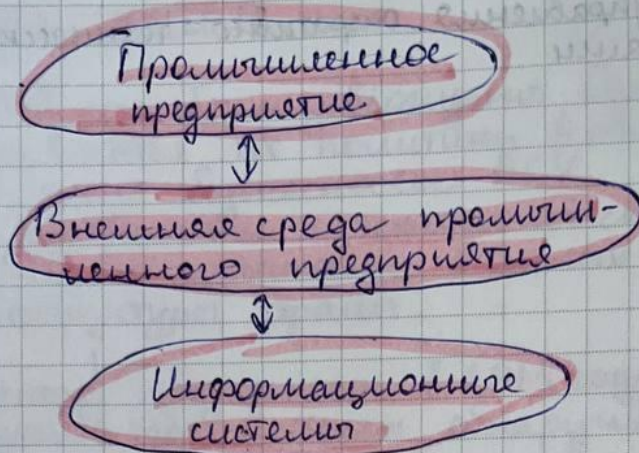 Промышленное
предприятие
Внешняя среда промыш-
ленного предприятия
Информационные
системы